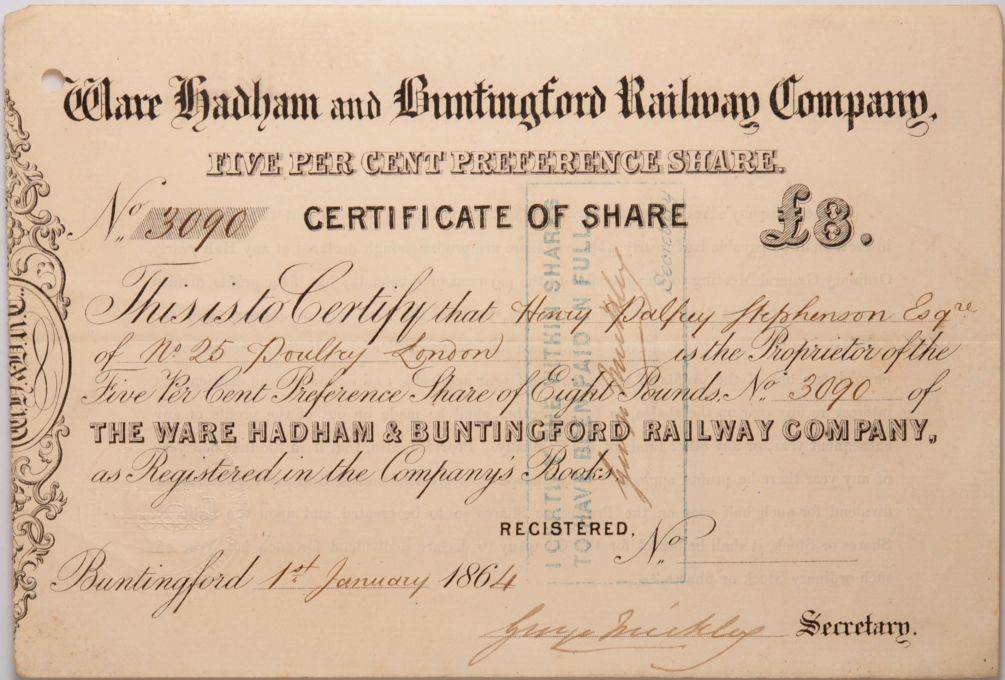 Ware Hadham and Buntingford Railway Company.
FIVE PER CENT PREFERENCE SHARE.
No. 3090 CERTIFICATE OF SHARE £8.
This is to Certify that Henry Palfrey Stephenson Esqre
of No 25 Poultry London is the Proprietor of the
Five Per Cent Preference Share of Eight Pounds. No. 3090 of
THE WARE HADHAM & BUNTINGFORD RAILWAY COMPANY,
as Registered in the Company's Books.
REGISTERED, No.
Buntingford 1st January 1864
George Mickley Secretary.
I CERTIFY THE WITHIN SHARES
TO HAVE BEEN PAID IN FULL
George Mickley
Secretary